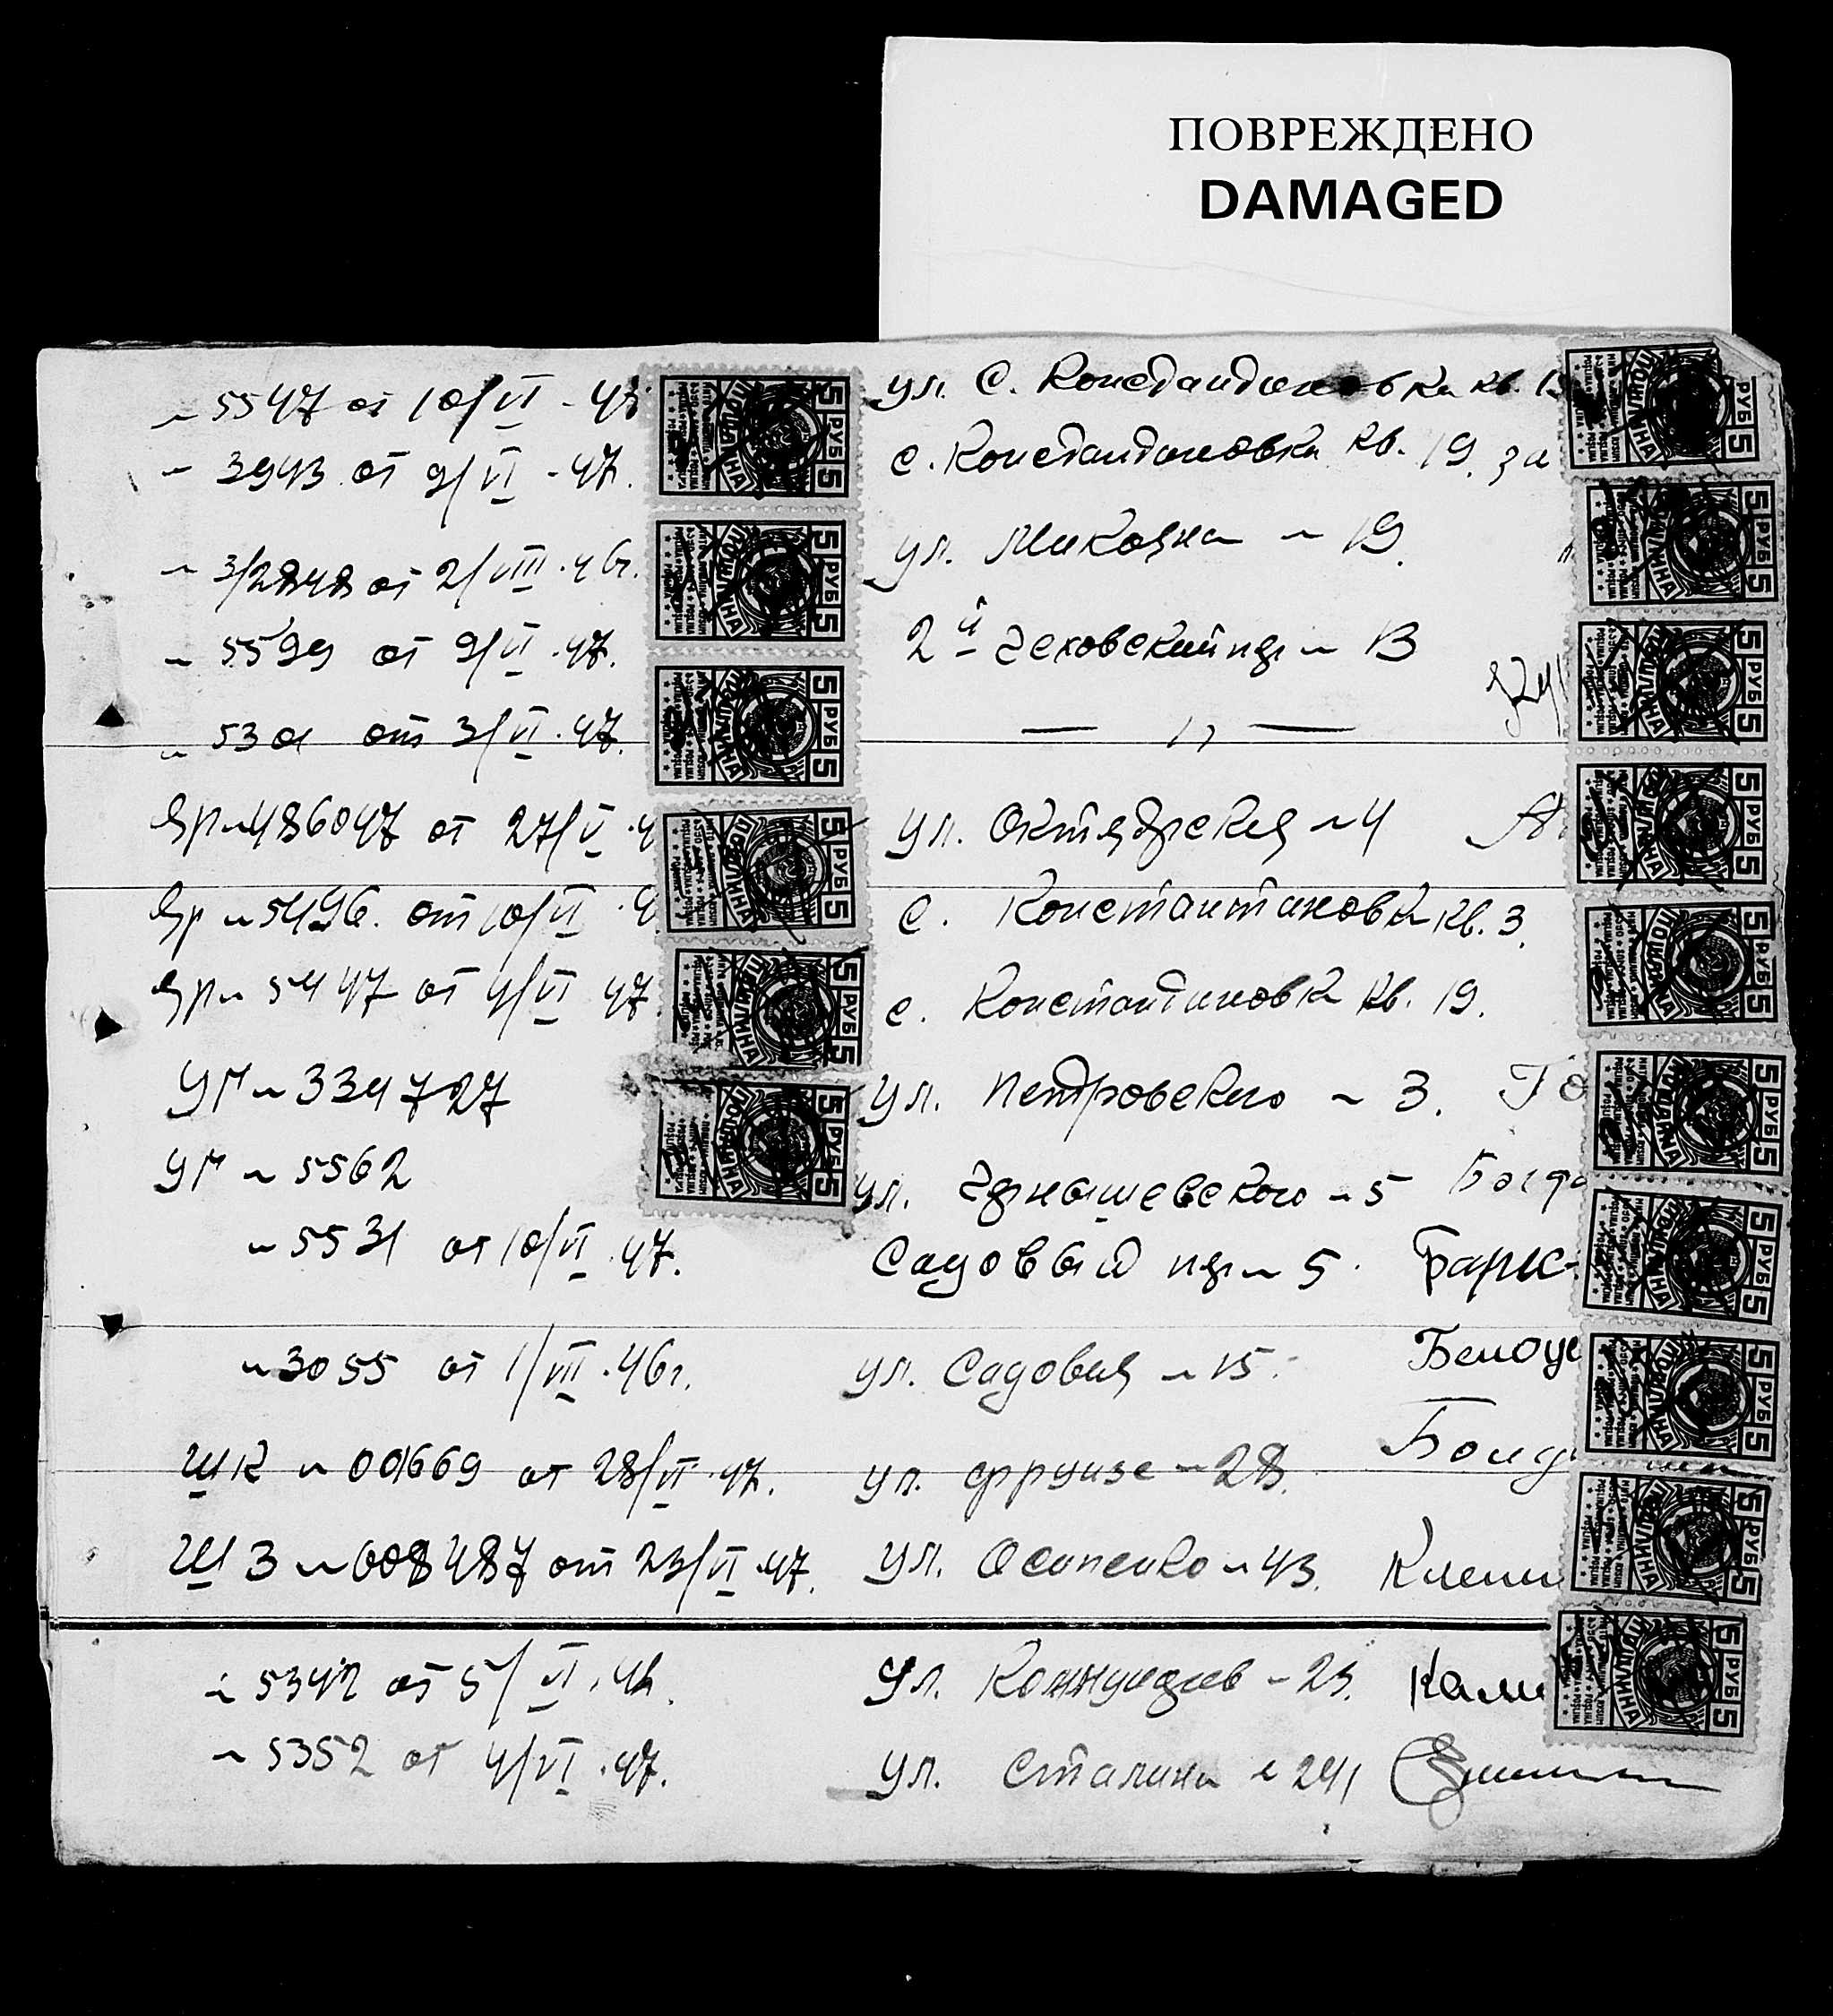 ПОВРЕЖДЕНО
DAMAGED
~ 5547 от 10/VI - 47 ул. С. Константиновка кв. 13
~ 3943 от 9/VI - 47. с. Константиновка кв. 19. за
~ 3/2848 от 2/VIII - 46г. ул. Микояна ~ 19.
~ 5599 от 9/VI - 47. 2й Чеховский пер ~ 13
~ 5301 от 3/VI - 47. — " —
Яр ~ 486047 от 27/V - 4 ул. Октябрская ~ 4
Яр ~ 5496. от 10/VI - 4 с. Константиновка кв. 3.
Яр ~ 5447 от 4/VI 47 с. Константиновка кв. 19.
УГ ~ 334727 ул. Петровского ~ 3. Го
УГ ~ 5562 ул. Чернышевского ~ 5 Богда
~ 5531 от 10/VI - 47. Садовый пер ~ 5. Барк
~ 3055 от 1/VIII - 46г. ул. Садовая ~ 15. Белоце
ШК ~ 001669 от 28/VI - 47. ул. Фрунзе ~ 28. Бонд
ШЗ ~ 608487 от 23/VI 47. ул. Осипенко ~ 43. Клеш
~ 5342 от 5/VI - 47. ул. Коммунаров ~ 23. Кали
~ 5352 от 4/VI - 47. ул. Сталина ~ 24
5 РУБ 5
ПОШЛИНА